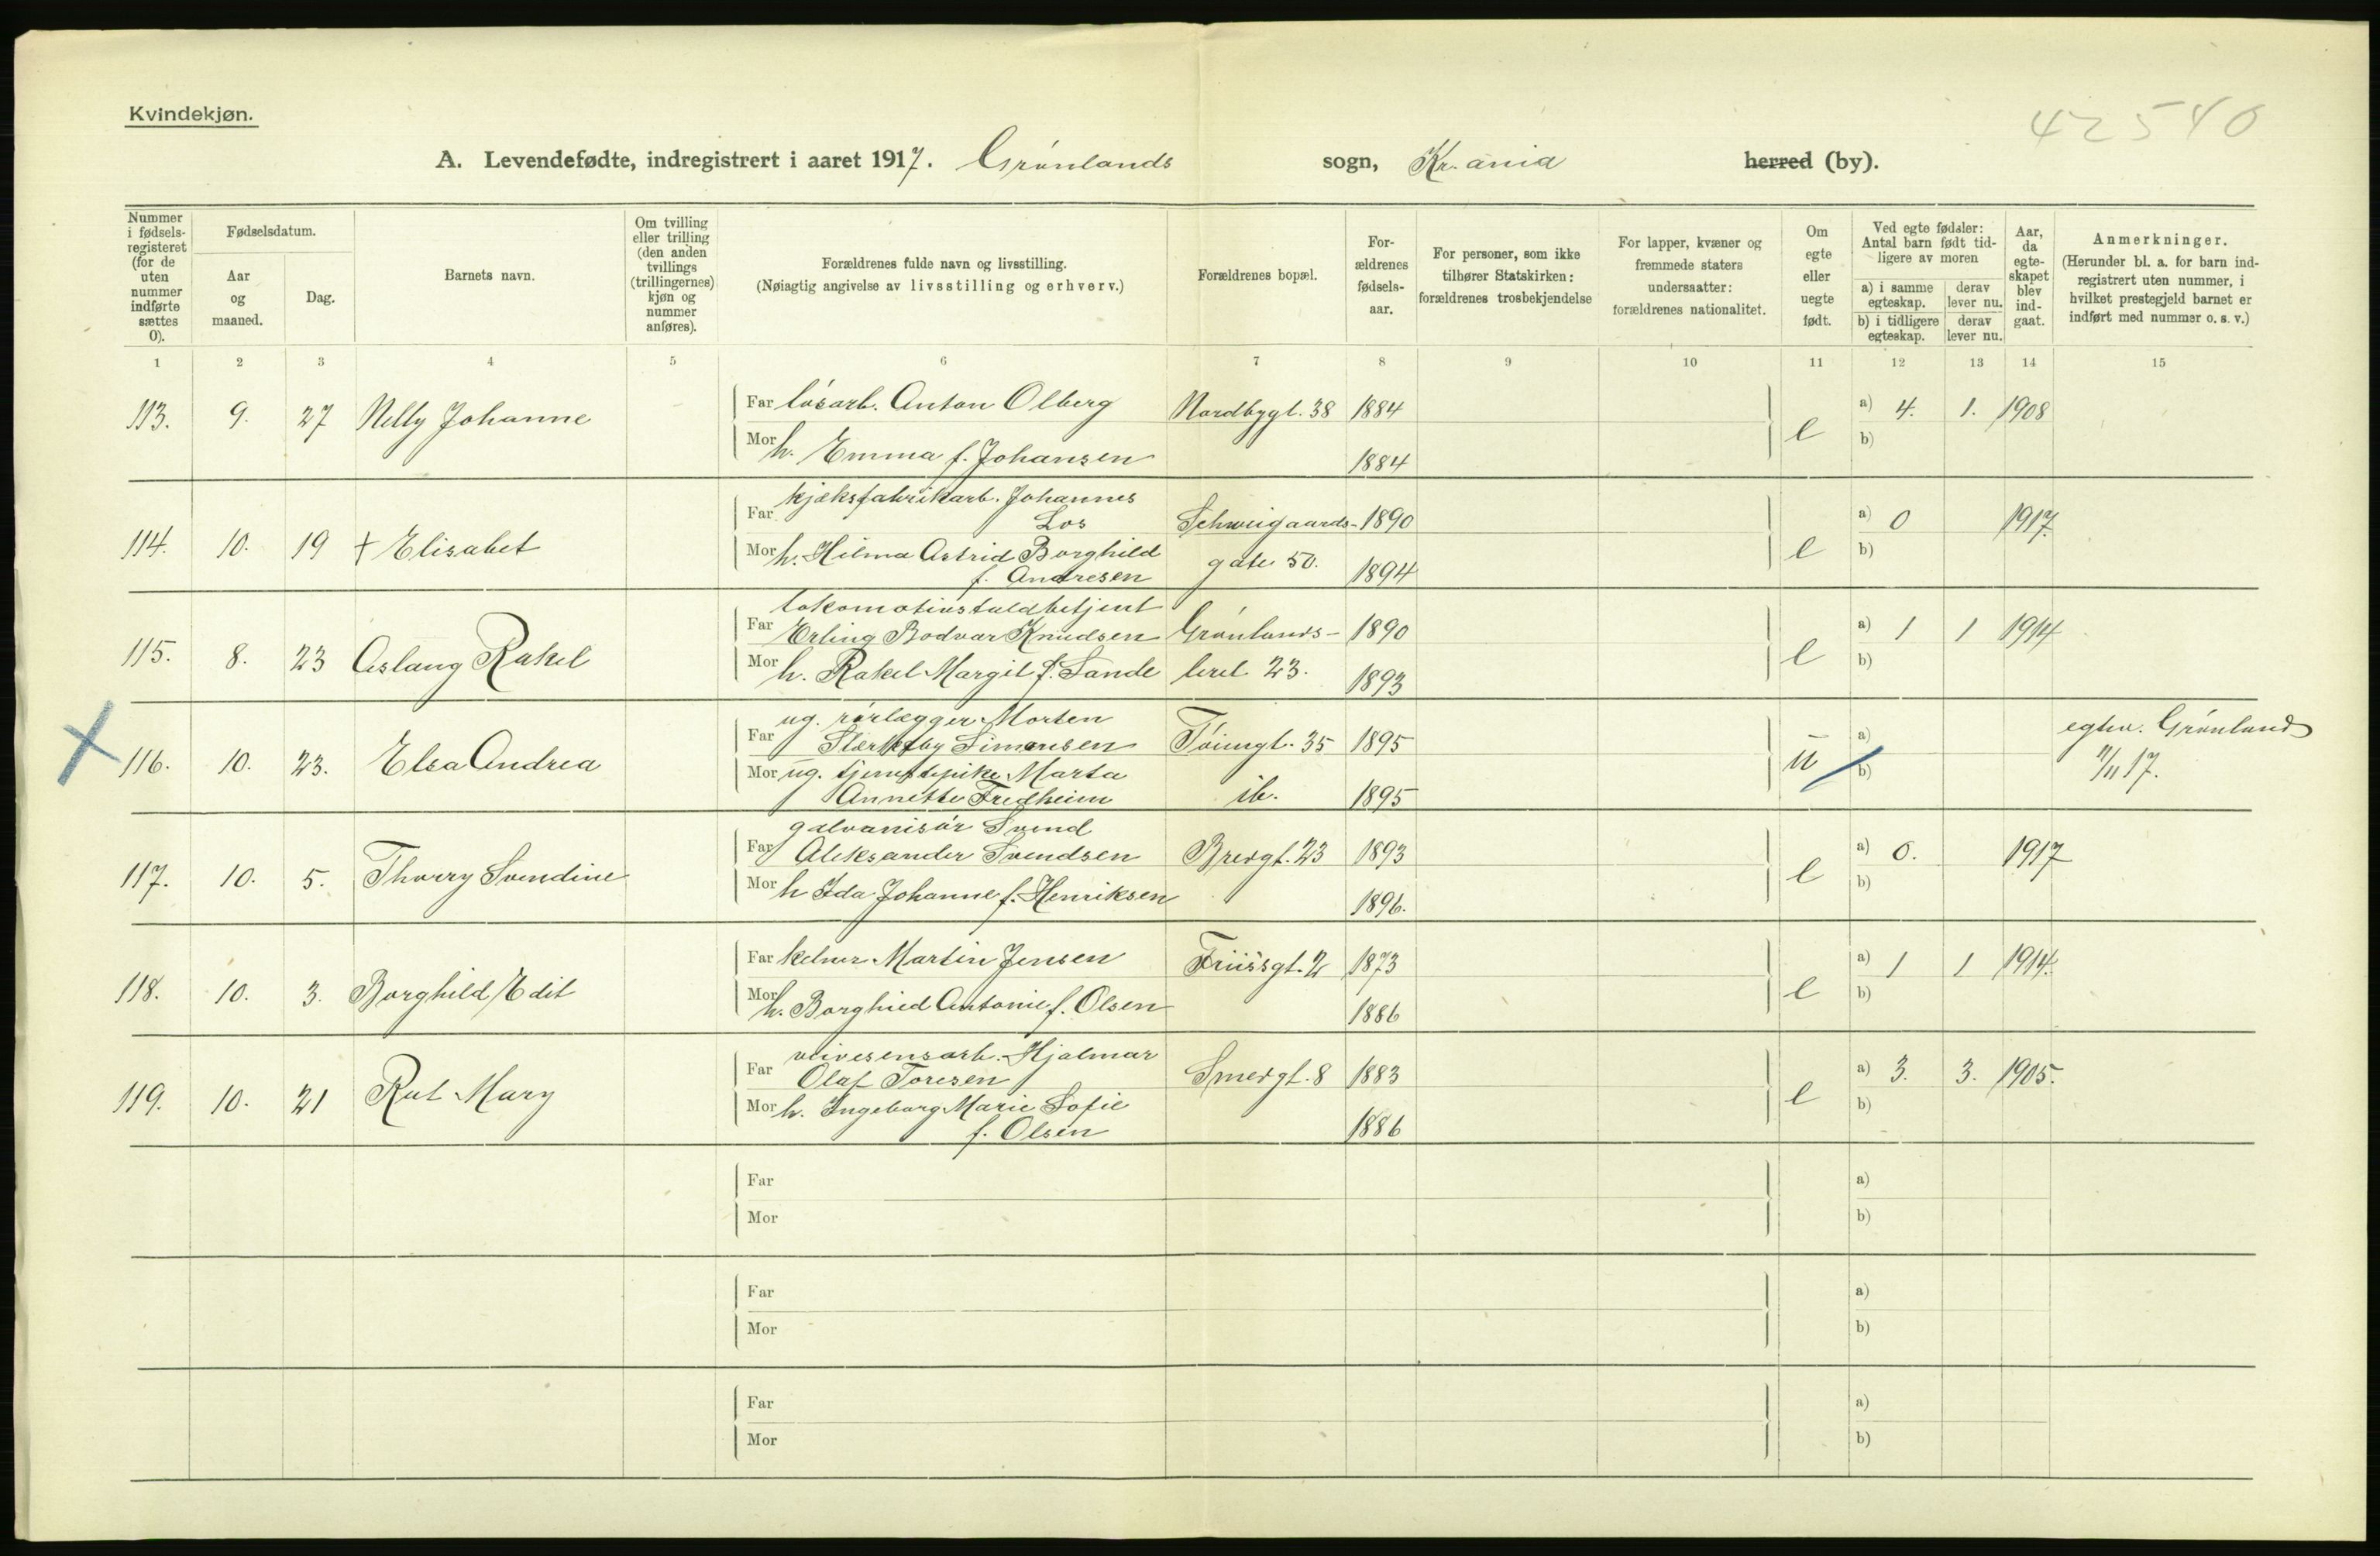 Kvindekjøn.
42540
A. Levendefødte, indregistrert i aaret 1917. Grønlands sogn, Kr.ania herred (by).
Nummer i fødselsregisteret (for de uten nummer indførte sættes 0).
Fødselsdatum.
Aar og maaned.
Dag.
Barnets navn.
Om tvilling eller trilling (den anden tvillings (trillingernes) kjøn og nummer anføres).
Forældrenes fulde navn og livsstilling.
(Nøiagtig angivelse av livsstilling og erhverv.)
Forældrenes bopæl.
Forældrenes fødselsaar.
For personer, som ikke tilhører Statskirken: forældrenes trosbekjendelse
For lapper, kvæner og fremmede staters undersaatter: forældrenes nationalitet.
Om egte eller uegte født.
Ved egte fødsler: Antal barn født tidligere av moren
a) i samme egteskap. derav lever nu.
b) i tidligere egteskap. derav lever nu.
Aar, da egteskapet blev indgaat.
Anmerkninger.
(Herunder bl. a. for barn indregistrert uten nummer, i hvilket prestegjeld barnet er indført med nummer o. s. v.)
1 2 3 4 5 6 7 8 9 10 11 12 13 14 15
113. 9. 27 Nelly Johanne Far løsarb. Anton Olberg Nordbygt. 38 1884 e a) 4. 1. 1908
Mor h. Emma f. Johansen 1884 b)
kjæksfabrikarb. Johannes
114. 10. 19 + Elisabet Far Los Schweigaards- 1890 e a) 0 1917.
Mor h. Hilma Astrid Borghild gate 50. 1894 b)
f. Andresen
lokomotivstaldbetjent
115. 8. 23 Aslaug Rakel Far Erling Bodvar Knudsen Grønlands- 1890 e a) 1 1 1914
Mor h. Rakel Margit f. Sande leret 23. 1893 b)
ug. rørlægger Morten
116. 10. 23. Elsa Andrea Far Simensen Tøiengt. 35 1895 u a) egtev. Grønland
Mor ug. tjenestepike Marta b) 11/11 17.
Annette Fredheim ib. 1895
galvanisør Svend
117. 10. 5. Thorry Svendine Far Aleksander Svendsen Bredgt. 23 1893 e a) 0. 1917
Mor h Ida Johanne f. Henriksen 1896. b)
118. 10. 3. Borghild Edit Far kelner Martin Jensen Friissgt. 2 1873 e a) 1 1 1914.
Mor h. Borghild Antonie f. Olsen 1886 b)
veivesensarb. Hjalmar
119. 10. 21 Rut Mary Far Olaf Toresen Smedgt. 8 1883 e a) 3. 3. 1905.
Mor h. Ingeborg Marie Sofie b)
f. Olsen 1886
Far a)
Mor b)
Far a)
Mor b)
Far a)
Mor b)